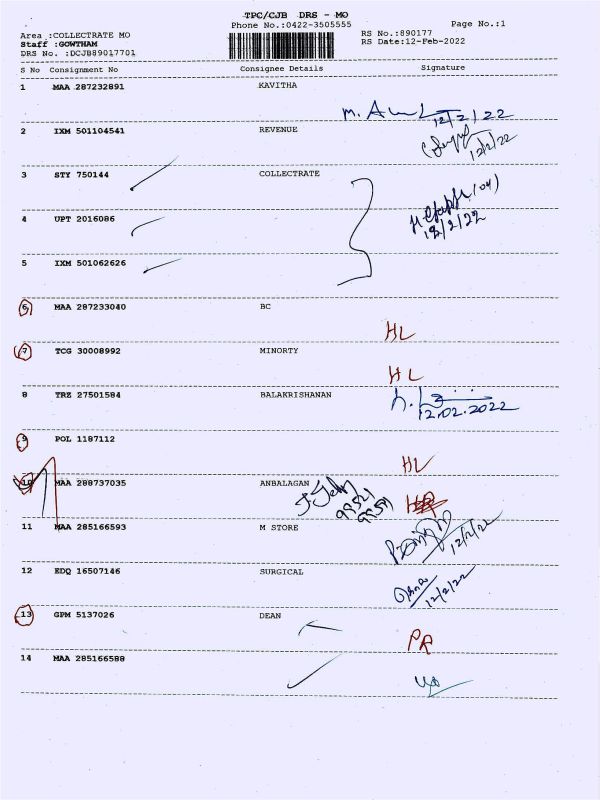 TPC/CJB DRS - MO
Phone No.:0422-3505555 Page No.:1
Area :COLLECTRATE MO RS No.:890177
Staff :GOWTHAM RS Date:12-Feb-2022
DRS No. :DCJB89017701
S No Consignment No Consignee Details Signature
1 MAA 287232891 KAVITHA
12/2/22
2 IXM 501104541 REVENUE
12/2/22
3 STY 750144 COLLECTRATE
4 UPT 2016086
12/2/22
5 IXM 501062626
6 MAA 287233040 BC
HL
7 TCG 30008992 MINORTY
HL
8 TRZ 27501584 BALAKRISHANAN
12.02.2022
9 POL 1187112
HL
10 MAA 288737035 ANBALAGAN
11 MAA 285166593 M STORE
12/2/22
12 EDQ 16507146 SURGICAL
12/2/22
13 GPM 5137026 DEAN
PR
14 MAA 285166588